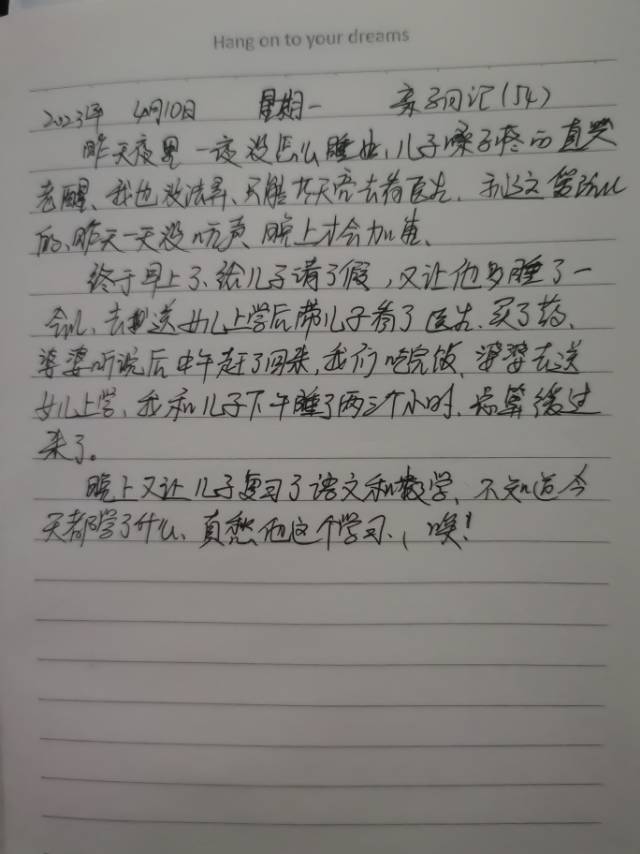 Hang on to your dreams
2023年 4月10日 星期一 亲子日记(54)
昨天夜里一夜没怎么睡也,儿子嗓子疼的直哭
老醒、我也没法弄、只能 天亮去看医生.
的,昨天一天没吭声 晚上才会加重、
终于早上了、给儿子请了假,又让他多睡了一
会儿、去 送女儿上学后带儿子看了医生、买了药、
婆婆听说后中午赶了回来,我们吃完饭、婆婆去送
女儿上学、我和儿子下午睡了两三个小时、总算缓过
来了。
晚上又让儿子复习了语文和数学、不知道今
天都学了什么、真愁他这个学习、,唉!